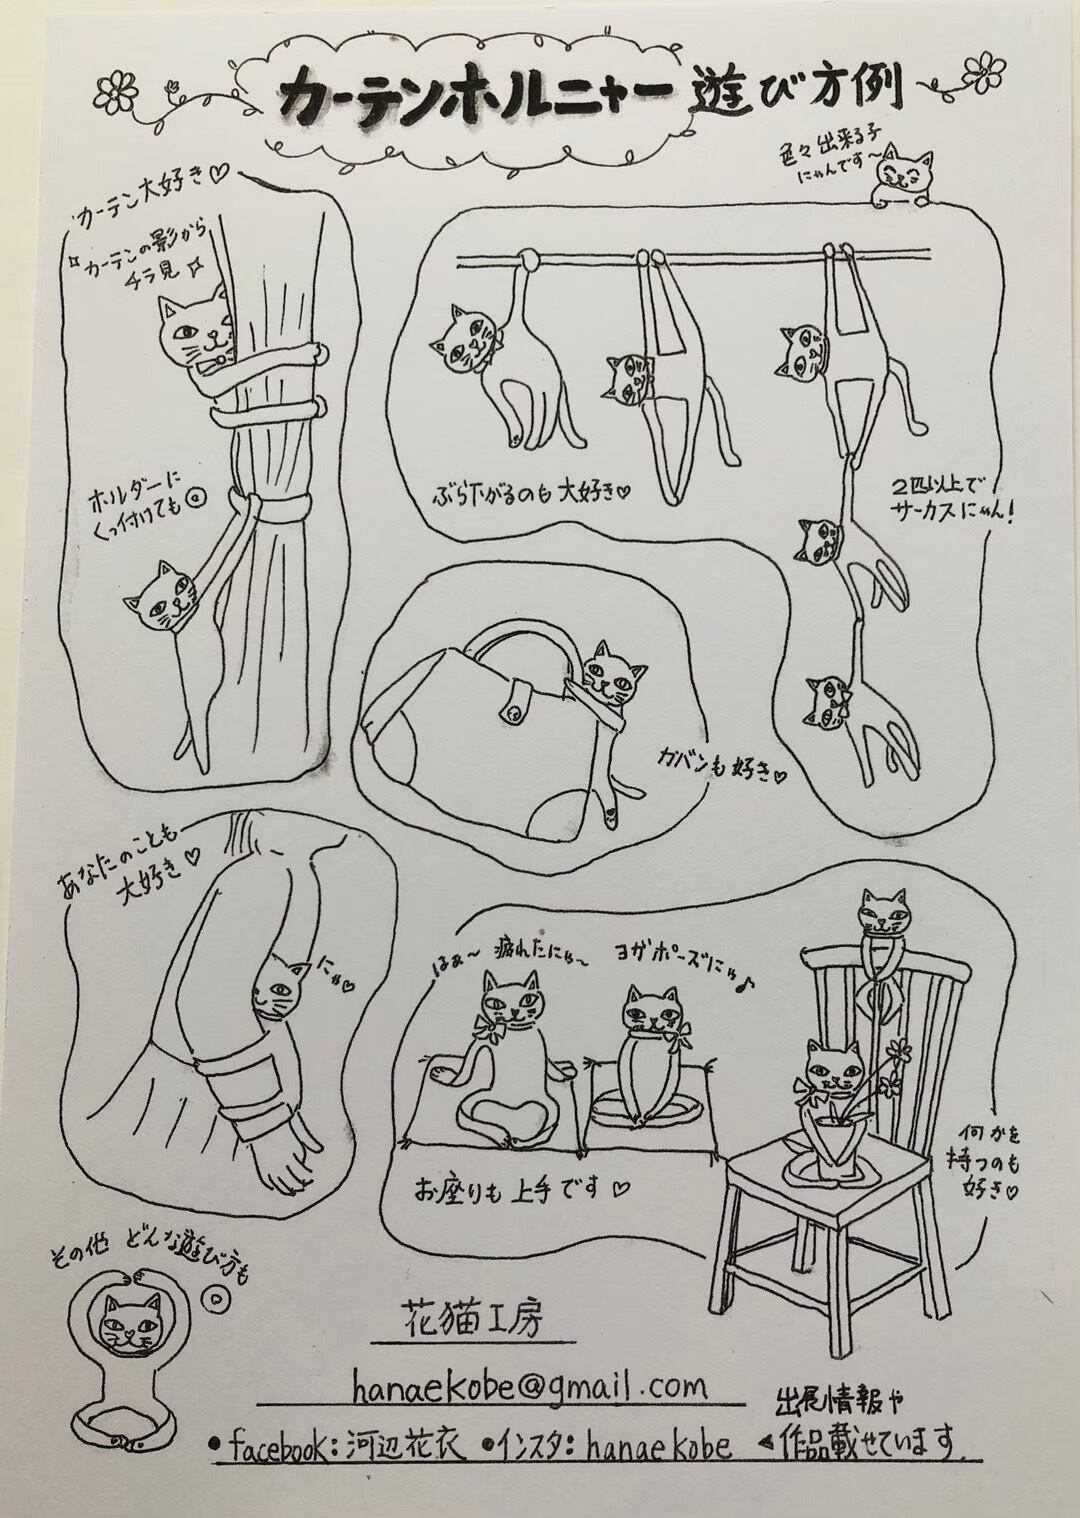 カーテンホルニャー 遊び方例
色々出来る子
にゃんです〜
カーテン大好き♡
カーテンの影から
チラ見
ホルダーに
くっ付けても◎
ぶら下がるのも大好き♡
2匹以上で
サーカスにゃん!
カバンも好き♡
あなたのことも
大好き♡
にゃ♡
はぁ〜 疲れたにゃ〜
ヨガポーズにゃ♪
お座りも上手です♡
何かを
持つのも
好き♡
その他 どんな遊び方も
◎
花猫工房
hanaekobe@gmail.com
•facebook:河辺花衣 •インスタ:hanaekobe
出展情報や
作品載せています.